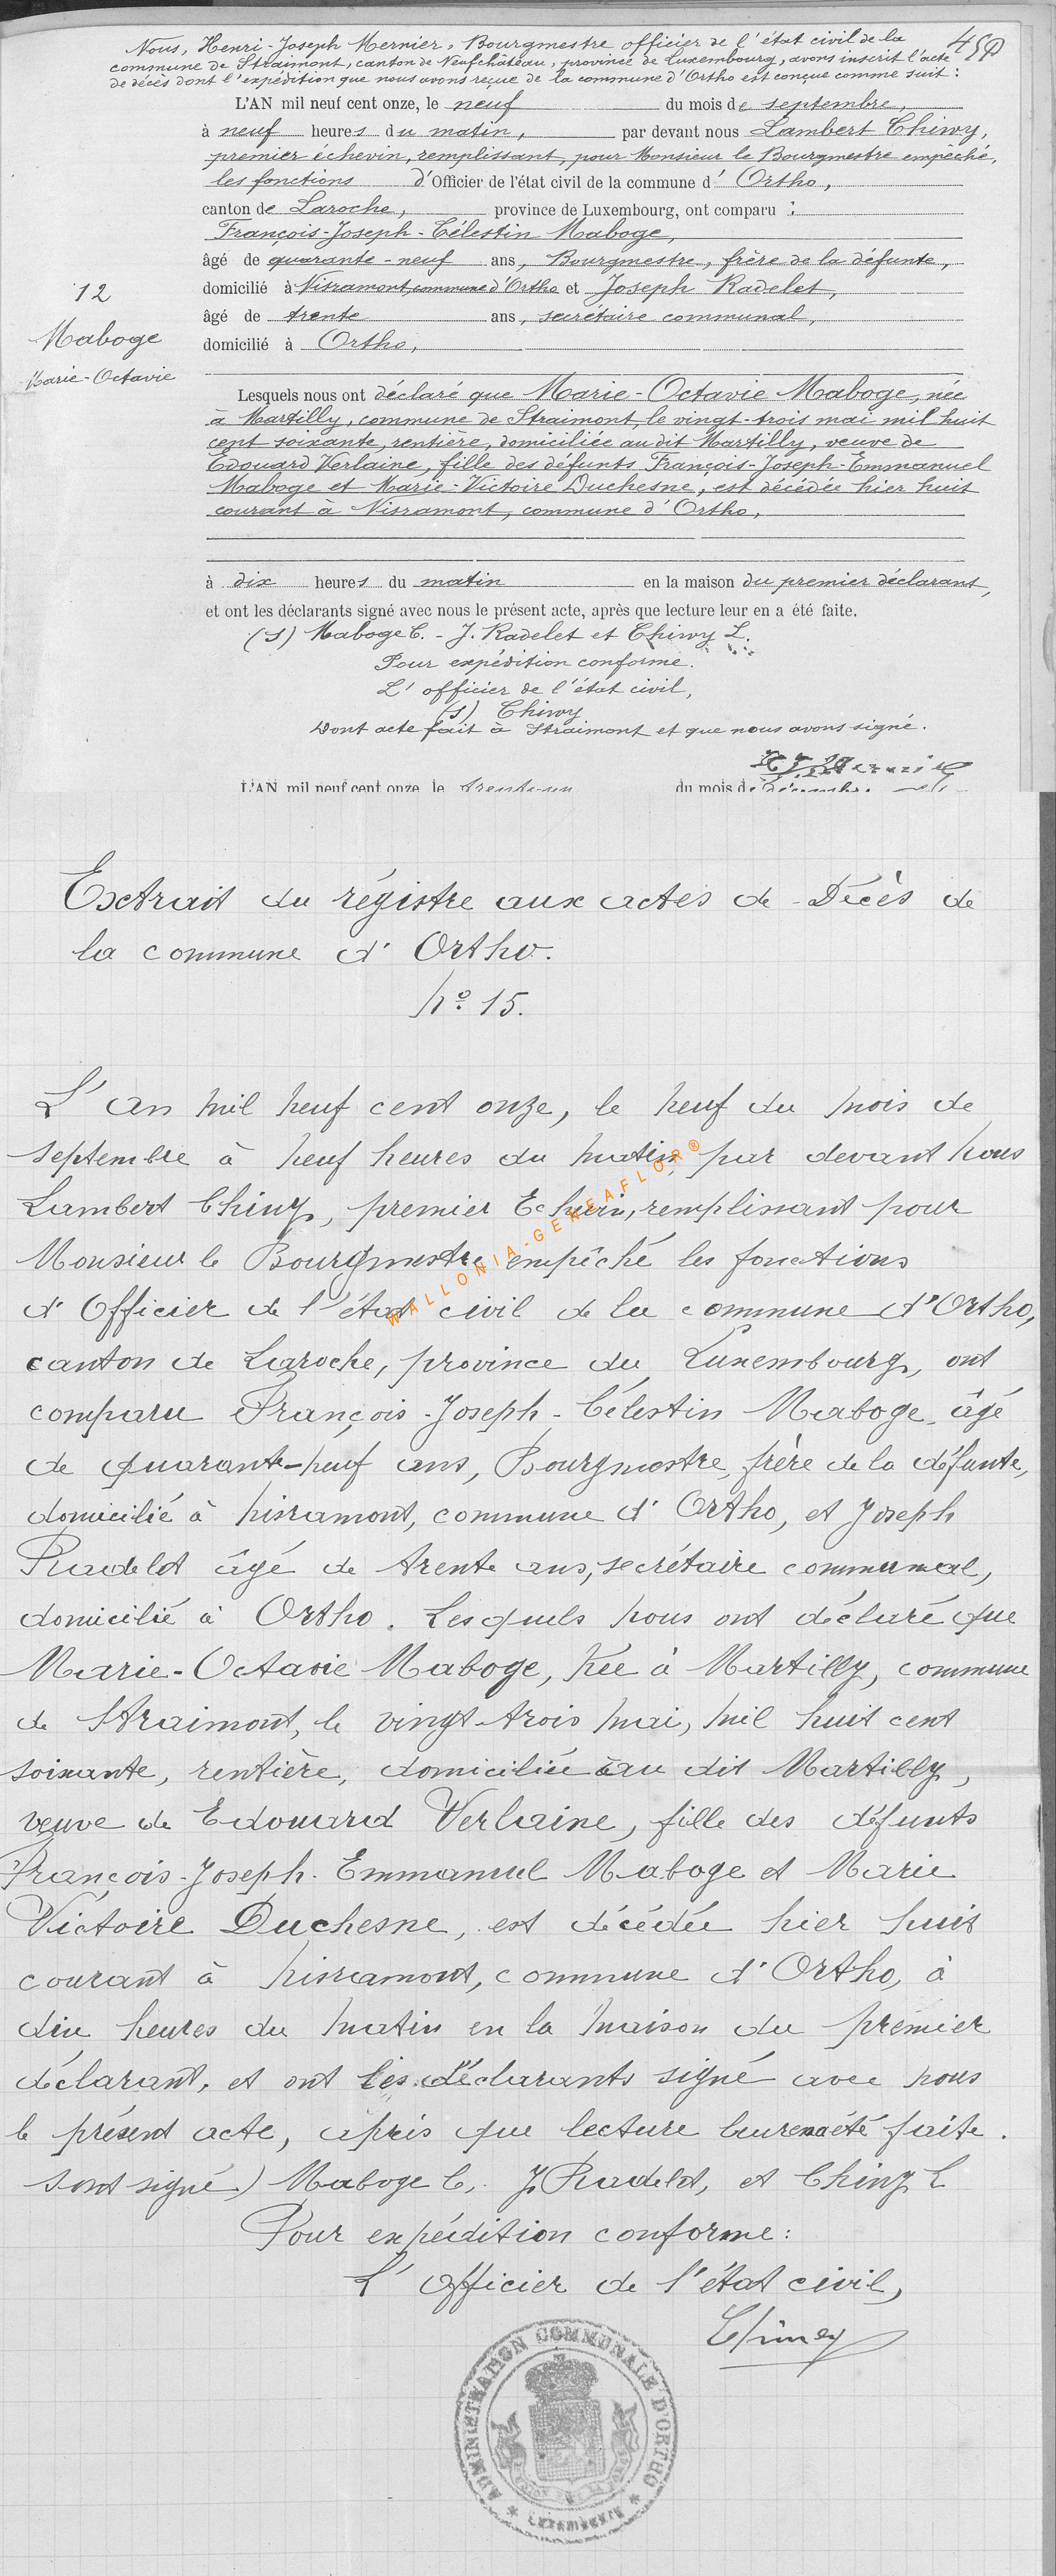 Nous, Henri-Joseph Mernier, Bourgmestre officier de l'état civil de la
commune de Straimont, canton de Neufchâteau, province de Luxembourg, avons inscrit l'acte
de décès dont l'expédition que nous avons reçue de la commune d'Ortho est conçue comme suit :
L'AN mil neuf cent onze, le neuf du mois de septembre,
à neuf heures du matin, par devant nous Lambert Chiwy,
premier échevin, remplissant, pour Monsieur le Bourgmestre empêché,
les fonctions d'Officier de l'état civil de la commune d' Ortho,
canton de Laroche, province de Luxembourg, ont comparu :
François-Joseph-Célestin Maboge,
âgé de quarante-neuf ans, Bourgmestre, frère de la défunte,
domicilié à Nisramont, commune d'Ortho et Joseph Radelet,
âgé de trente ans, secrétaire communal,
domicilié à Ortho,
12
Maboge
Marie-Octavie
Lesquels nous ont déclaré que Marie-Octavie Maboge, née
à Martilly, commune de Straimont, le vingt-trois mai mil huit
cent soixante, rentière, domiciliée audit Martilly, veuve de
Edouard Verlaine, fille des défunts François-Joseph-Emmanuel
Maboge et Marie-Victoire Duchesne, est décédée hier huit
courant à Nisramont, commune d'Ortho,
à dix heures du matin en la maison du premier déclarant,
et ont les déclarants signé avec nous le présent acte, après que lecture leur en a été faite.
(s) Maboge C. - J. Radelet et Chiwy L.
Pour expédition conforme.
L'officier de l'état civil,
(s) Chiwy
Dont acte fait à Straimont et que nous avons signé.
L'AN mil neuf cent onze le trente-un du mois de décembre
Extrait du régistre aux actes de Décès de
la commune d' Ortho.
No 15.
L'an mil neuf cent onze, le neuf du mois de
septembre à neuf heures du matin, par devant nous
Lambert Chiwy, premier Echevin, remplissant pour
Monsieur le Bourgmestre empêché les fonctions
d'Officier de l'état civil de la commune d'Ortho,
canton de Laroche, province du Luxembourg, ont
comparu François-Joseph-Célestin Maboge âgé
de quarante-neuf ans, Bourgmestre, frère de la défunte,
domicilié à Nisramont, commune d' Ortho, et Joseph
Radelet âgé de trente ans, secrétaire communal,
domicilié à Ortho. Lesquels nous ont déclaré que
Marie-Octavie Maboge, née à Martilly, commune
de Straimont, le vingt-trois mai, mil huit cent
soixante, rentière, domiciliée au dit Martilly,
veuve de Edouard Verlaine, fille des défunts
François-Joseph-Emmanuel Maboge et Marie
Victoire Duchesne, est décédée hier huit
courant à Nisramont, commune d' Ortho, à
dix heures du matin en la maison du premier
déclarant, et ont les déclarants signé avec nous
le présent acte, après que lecture leur en a été faite.
sont signé) Maboge C, J. Radelet, et Chiwy L
Pour expédition conforme:
L'officier de l'état civil,
Chiwy
ADMINISTRATION COMMUNALE D'ORTHO
LUXEMBOURG
WALLONIA-GENEAFLOR®